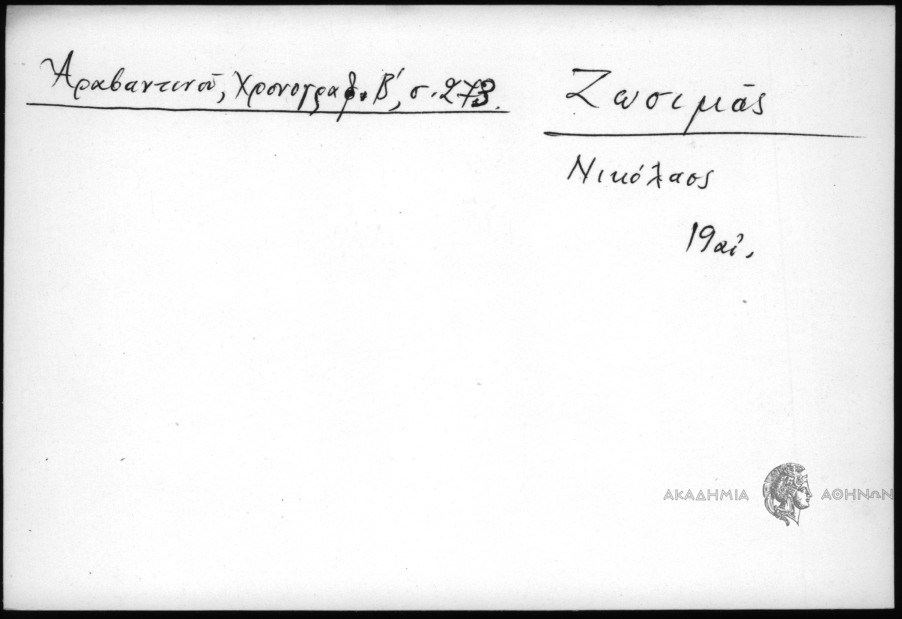 Ἀραβαντινοῦ, Χρονογραφ. Β', σ. 273.
Ζωσιμᾶς
Νικόλαος
19 αἰ.
ΑΚΑΔΗΜΙΑ ΑΘΗΝΩΝ